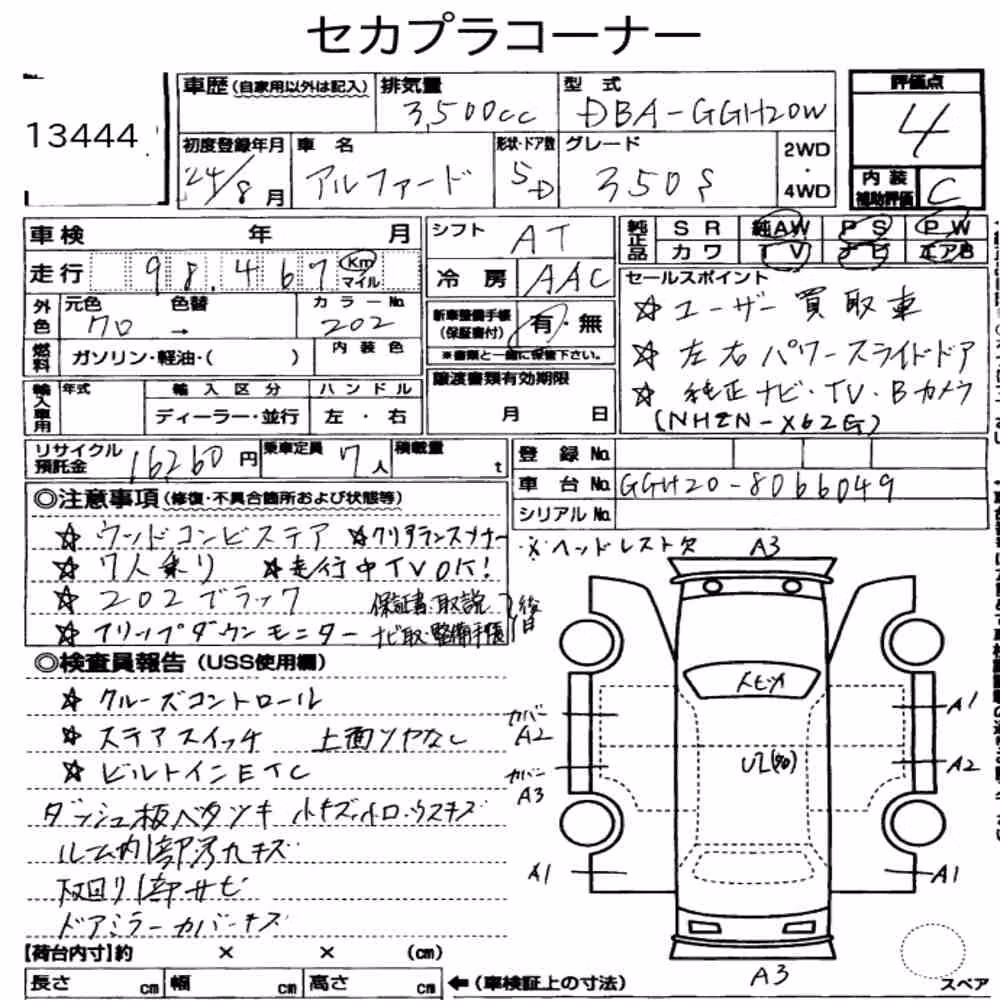 セカプラコーナー
13444
車歴(自家用以外は記入)
排気量
3,500cc
型式
DBA-GGH20W
評価点
4
初度登録年月
24/8月
車名
アルファード
形状・ドア数
5D
グレード
350S
2WD
・
4WD
内装
補助評価
C
車検 年 月
走行 98,467 Km
マイル
シフト
AT
冷房
AAC
純正品
SR 純AW PS PW
カワ TV ナビ エアB
外色
元色 色替
クロ →
カラーNo.
202
新車整備手帳
(保証書付)
有・無
※書類と一緒に保管下さい。
燃料
ガソリン・軽油・( )
内装色
セールスポイント
☆ユーザー買取車
☆左右パワースライドドア
☆純正ナビ・TV・Bカメラ
(NHZN-X62G)
輸入車用
年式
輸入区分
ディーラー・並行
ハンドル
左・右
譲渡書類有効期限
月 日
リサイクル
預託金
16260円
乗車定員
7人
積載量
t
登録No.
車台No. GGH20-8066049
シリアルNo.
◎注意事項(修復・不具合箇所および状態等)
☆ウッドコンビステア ☆クリアランスソナー
☆7人乗り ☆走行中TVOK!
☆202ブラック 保証書・取説
☆フリップダウンモニター ナビ取・整備手帳 後
※ヘッドレスト欠
◎検査員報告(USS使用欄)
☆クルーズコントロール
☆ステアスイッチ 上面ツヤなし
☆ビルトインETC
ダッシュ板ベタツキ 小キズ小凹・ウスキズ
ルーム内1部汚れキズ
下回り1部サビ
ドアミラーカバーキズ
A3
カバー
A2
カバー
A3
A1
A1
A2
A1
A3
スペア
【荷台内寸】約 × × (cm)
長さ cm 幅 cm 高さ cm
←(車検証上の寸法)